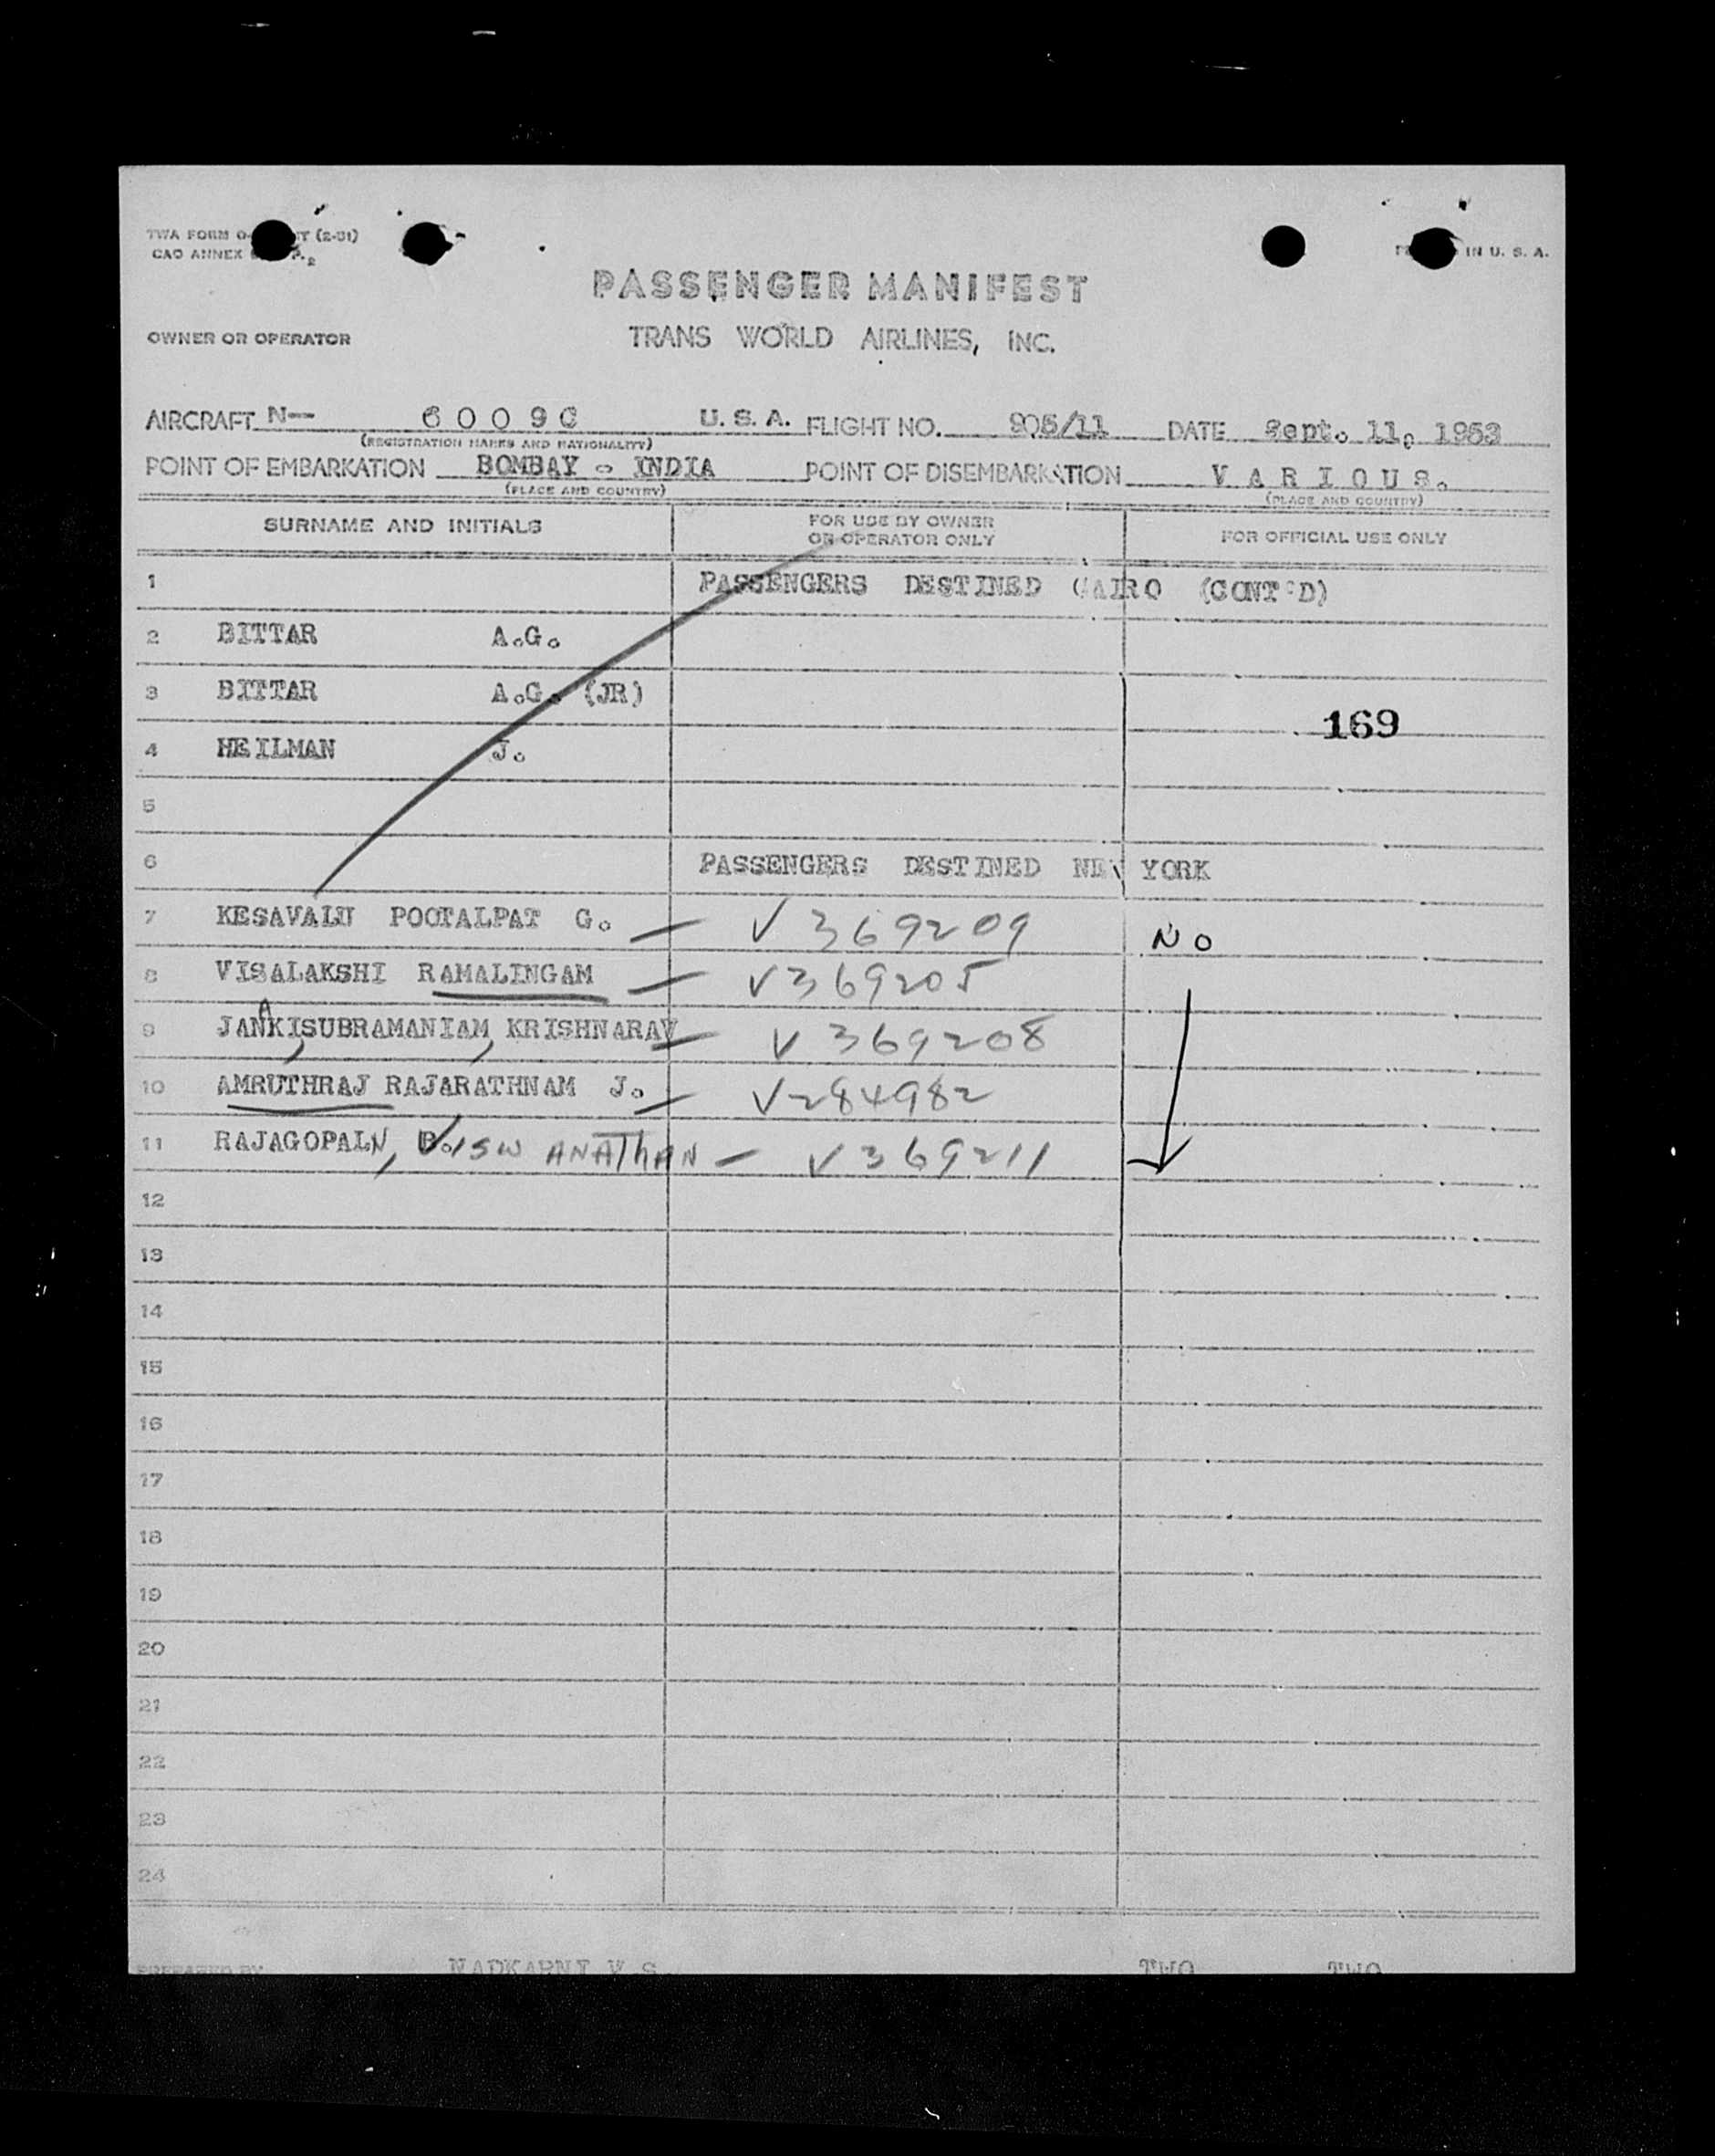 TWA FORM O- T (2-51)
CAO ANNEX P.2
IN U. S. A.
PASSENGER MANIFEST
OWNER OR OPERATOR TRANS WORLD AIRLINES, INC.
AIRCRAFT N-- 6 0 0 9 C U. S. A. FLIGHT NO. 905/11 DATE Sept. 11, 1953
(REGISTRATION MARKS AND NATIONALITY)
POINT OF EMBARKATION BOMBAY - INDIA POINT OF DISEMBARKATION V A R I O U S.
(PLACE AND COUNTRY) (PLACE AND COUNTRY)
SURNAME AND INITIALS FOR USE BY OWNER OR OPERATOR ONLY FOR OFFICIAL USE ONLY
1 PASSENGERS DESTINED CAIRO (CONT'D)
2 BITTAR A.G.
3 BITTAR A.G. (JR)
169
4 HEILMAN J.
5
6 PASSENGERS DESTINED NEW YORK
7 KESAVALU POOTALPAT G. — V 369209 No
8 VISALAKSHI RAMALINGAM — V369205
9 JANAKI, SUBRAMANIAM, KRISHNARAV — V 369208
10 AMRUTHRAJ RAJARATHNAM J. — V284982
11 RAJAGOPALN, VISWANATHAN — V369211
12
13
14
15
16
17
18
19
20
21
22
23
24
PREPARED BY NADKARNI V.S. TWO TWO